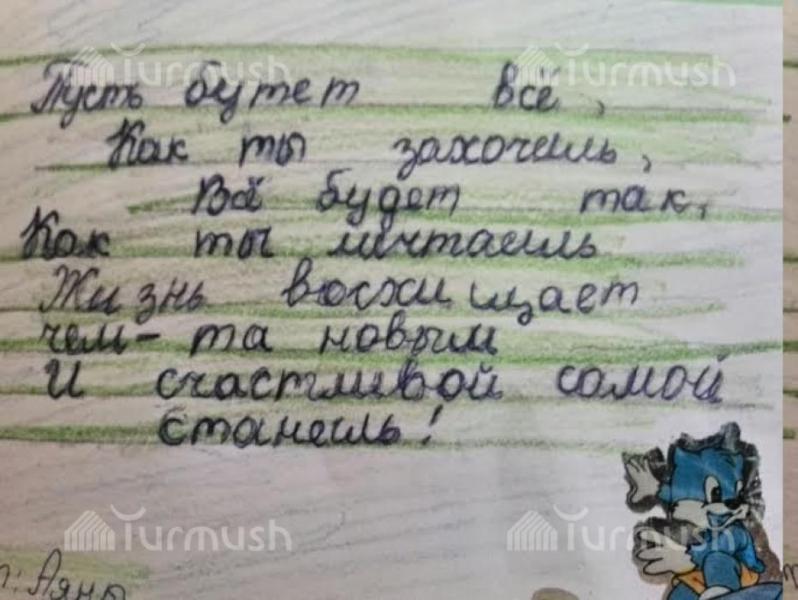 Turmush Turmush
Пусть бутет всё,
Как ты захочешь,
Всё будет так,
Как ты мечтаешь
Жизнь восхищает
чем-та новым
И счастливой самой
станешь!
Turmush Turmush
т: Аяны